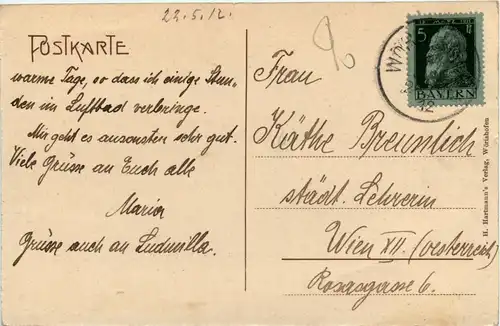 22.5.12.
POSTKARTE
warme Tage, so dass ich einige Stun-
den im Luftbad verbringe.
Mir geht es ansonsten sehr gut.
Viele Grüsse an Euch alle
Maria
Grüsse auch an Ludmilla.
Frau
Käthe Breunlich
städt. Lehrerin
Wien XII. (Oesterreich)
Rosasgasse 6.
5
BAYERN
12
H. Hartmann's Verlag, Wörishofen